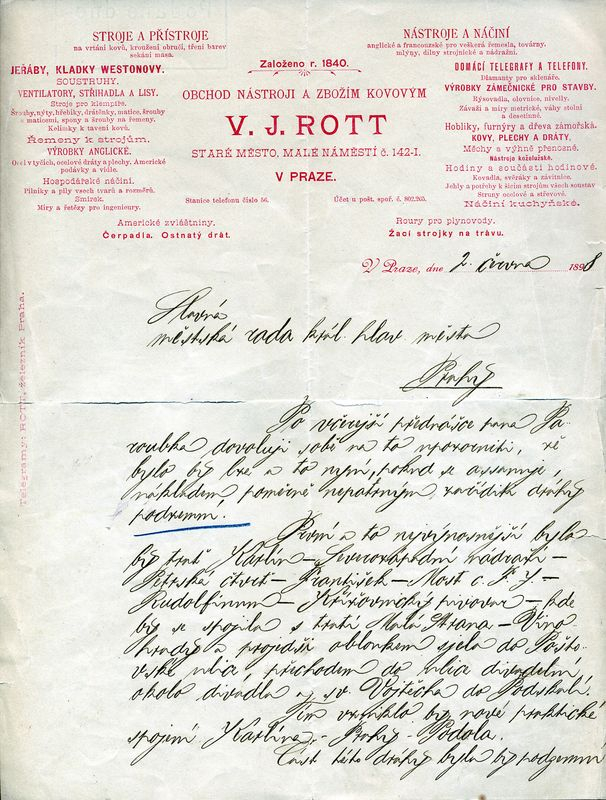 STROJE A PŘÍSTROJE
na vrtání kovů, kroužení obručí, tření barev
sekání masa.
JEŘÁBY, KLADKY WESTONOVY.
SOUSTRUHY.
VENTILATORY, STŘIHADLA A LISY.
Stroje pro klempíře.
Šrouby, nýty, hřebíky, drátěnky, matice, šrouby
s maticemi, spony a šrouby na řemeny.
Kelímky k tavení kovů.
Řemeny k strojům.
VÝROBKY ANGLICKÉ.
Ocel v tyčích, ocelové dráty a plechy. Americké
podávky a vidle.
Hospodářské náčiní.
Pilníky a pily všech tvarů a rozměrů.
Smirek.
Míry a řetězy pro ingenieury.
Americké zvláštniny.
Čerpadla. Ostnatý drát.
Založeno r. 1840.
OBCHOD NÁSTROJI A ZBOŽÍM KOVOVÝM
V. J. ROTT
STARÉ MĚSTO, MALÉ NÁMĚSTÍ č. 142-I.
V PRAZE.
Stanice telefonu číslo 56.
Účet u pošt. spoř. č. 802.205.
NÁSTROJE A NÁČINÍ
anglické a francouzské pro veškerá řemesla, továrny.
mlýny, dílny strojnické a nádražní.
DOMÁCÍ TELEGRAFY A TELEFONY.
Diamanty pro sklenáře.
VÝROBKY ZÁMEČNICKÉ PRO STAVBY.
Rýsovadla, olovnice, nivelly.
Závaží a míry metrické, váhy stolní
a desetinné.
Hoblíky, furnýry a dřeva zámořská.
KOVY, PLECHY A DRÁTY.
Měchy a výhně přenosné.
Nástroje koželužské.
Hodiny a součásti hodinové.
Kovadla, svěráky a závitnice.
Jehly a potřeby k šicím strojům všech soustav
Struny ocelové a střevové.
Náčiní kuchyňské.
Roury pro plynovody.
Žací strojky na trávu.
V Praze, dne 2. června 1898
Telegramy: ROTT, železník Praha.
Slavná
městská rada král. hlav. města
Prahy
Po včerejší přednášce pana Pa-
roubka dovoluji sobě na to upozorniti, že
bylo by lze a to nyní, pokud se assanuje,
nákladem poměrně nepatrným zaříditi dráhu
podzemní.
První a to nejvýnosnější byla
by trať Karlín – Severozápadní nádraží –
Petrská čtvrť – František – Most c. F. J. –
Rudolfinum – Křižovnický pivovar – kde
by se spojila s tratí Malá Strana – Vino-
hrady a projedši obloukem sjela do Pošto-
vské ulice, přechodem do ulice divadelní
okolo divadla a sv. Vojtěcha do Podskalí.
Tím vzniklo by nové praktické
spojení Karlína – Prahy – Podola.
Část této dráhy byla by podzemní